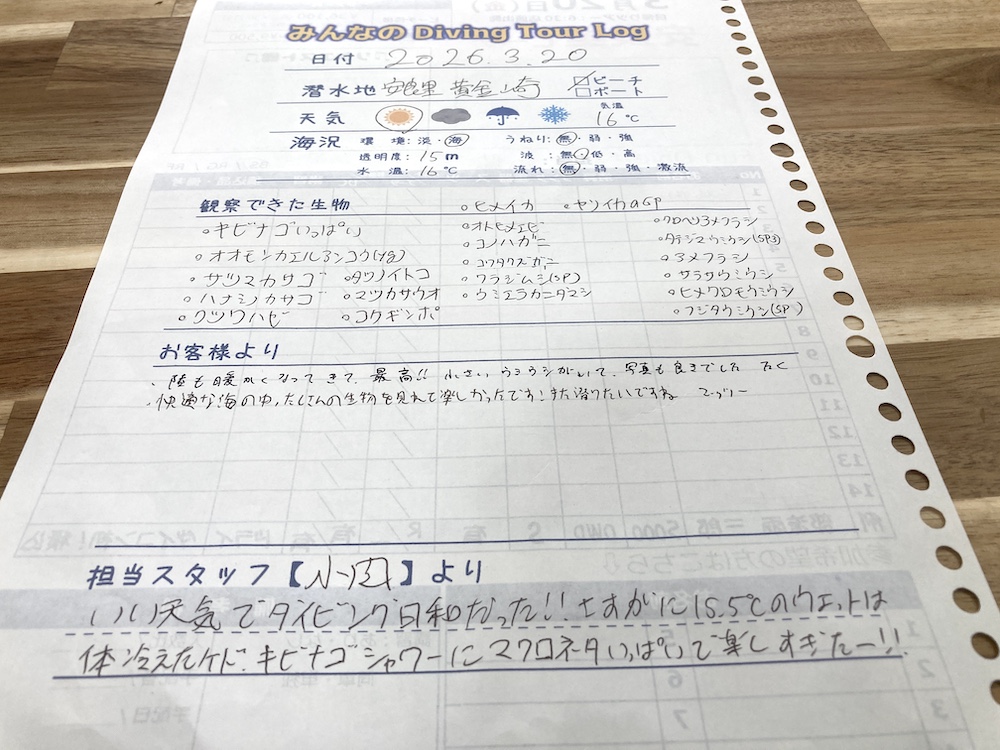 みんなの Diving Tour Log
日付 2026.3.20
潜水地 安良里 黄金崎 ☑ビーチ □ボート
天気 気温 16℃
海況 環境:淡・海 うねり:無・弱・強
透明度: 15m 波:無・低・高
水温: 16℃ 流れ:無・弱・強・激流
観察できた生物
。キビナゴいっぱい
。オオモンカエルアンコウ(yg)
。サツマカサゴ 。タツノイトコ
。ハナミノカサゴ 。マツカサウオ
。クツワハゼ 。コケギンポ
。ヒメイカ 。ヤリイカのSP
。オトヒメエビ
。コノハガニ
。ワラジムシ(SP)
。ウミエラカニダマシ
。クロヘリアメフラシ
。タテジマウミウシ(SP3)
。アメフラシ
。サラサウミウシ
。ヒメクロモウミウシ
。フジタウミウシ(SP)
お客様より
・陸も暖かくなってきて、最高!! 小さい ウミウシがいて、写真も良きでした
・快適な海の中、たくさんの生物を見れて楽しかったです!また潜りたいですね
担当スタッフ【小西】より
いい天気でダイビング日和だった!! さすがに15.5℃のウェットは
体冷えたケド、キビナゴシャワーにマクロネタいっぱいで楽しすぎたー!!